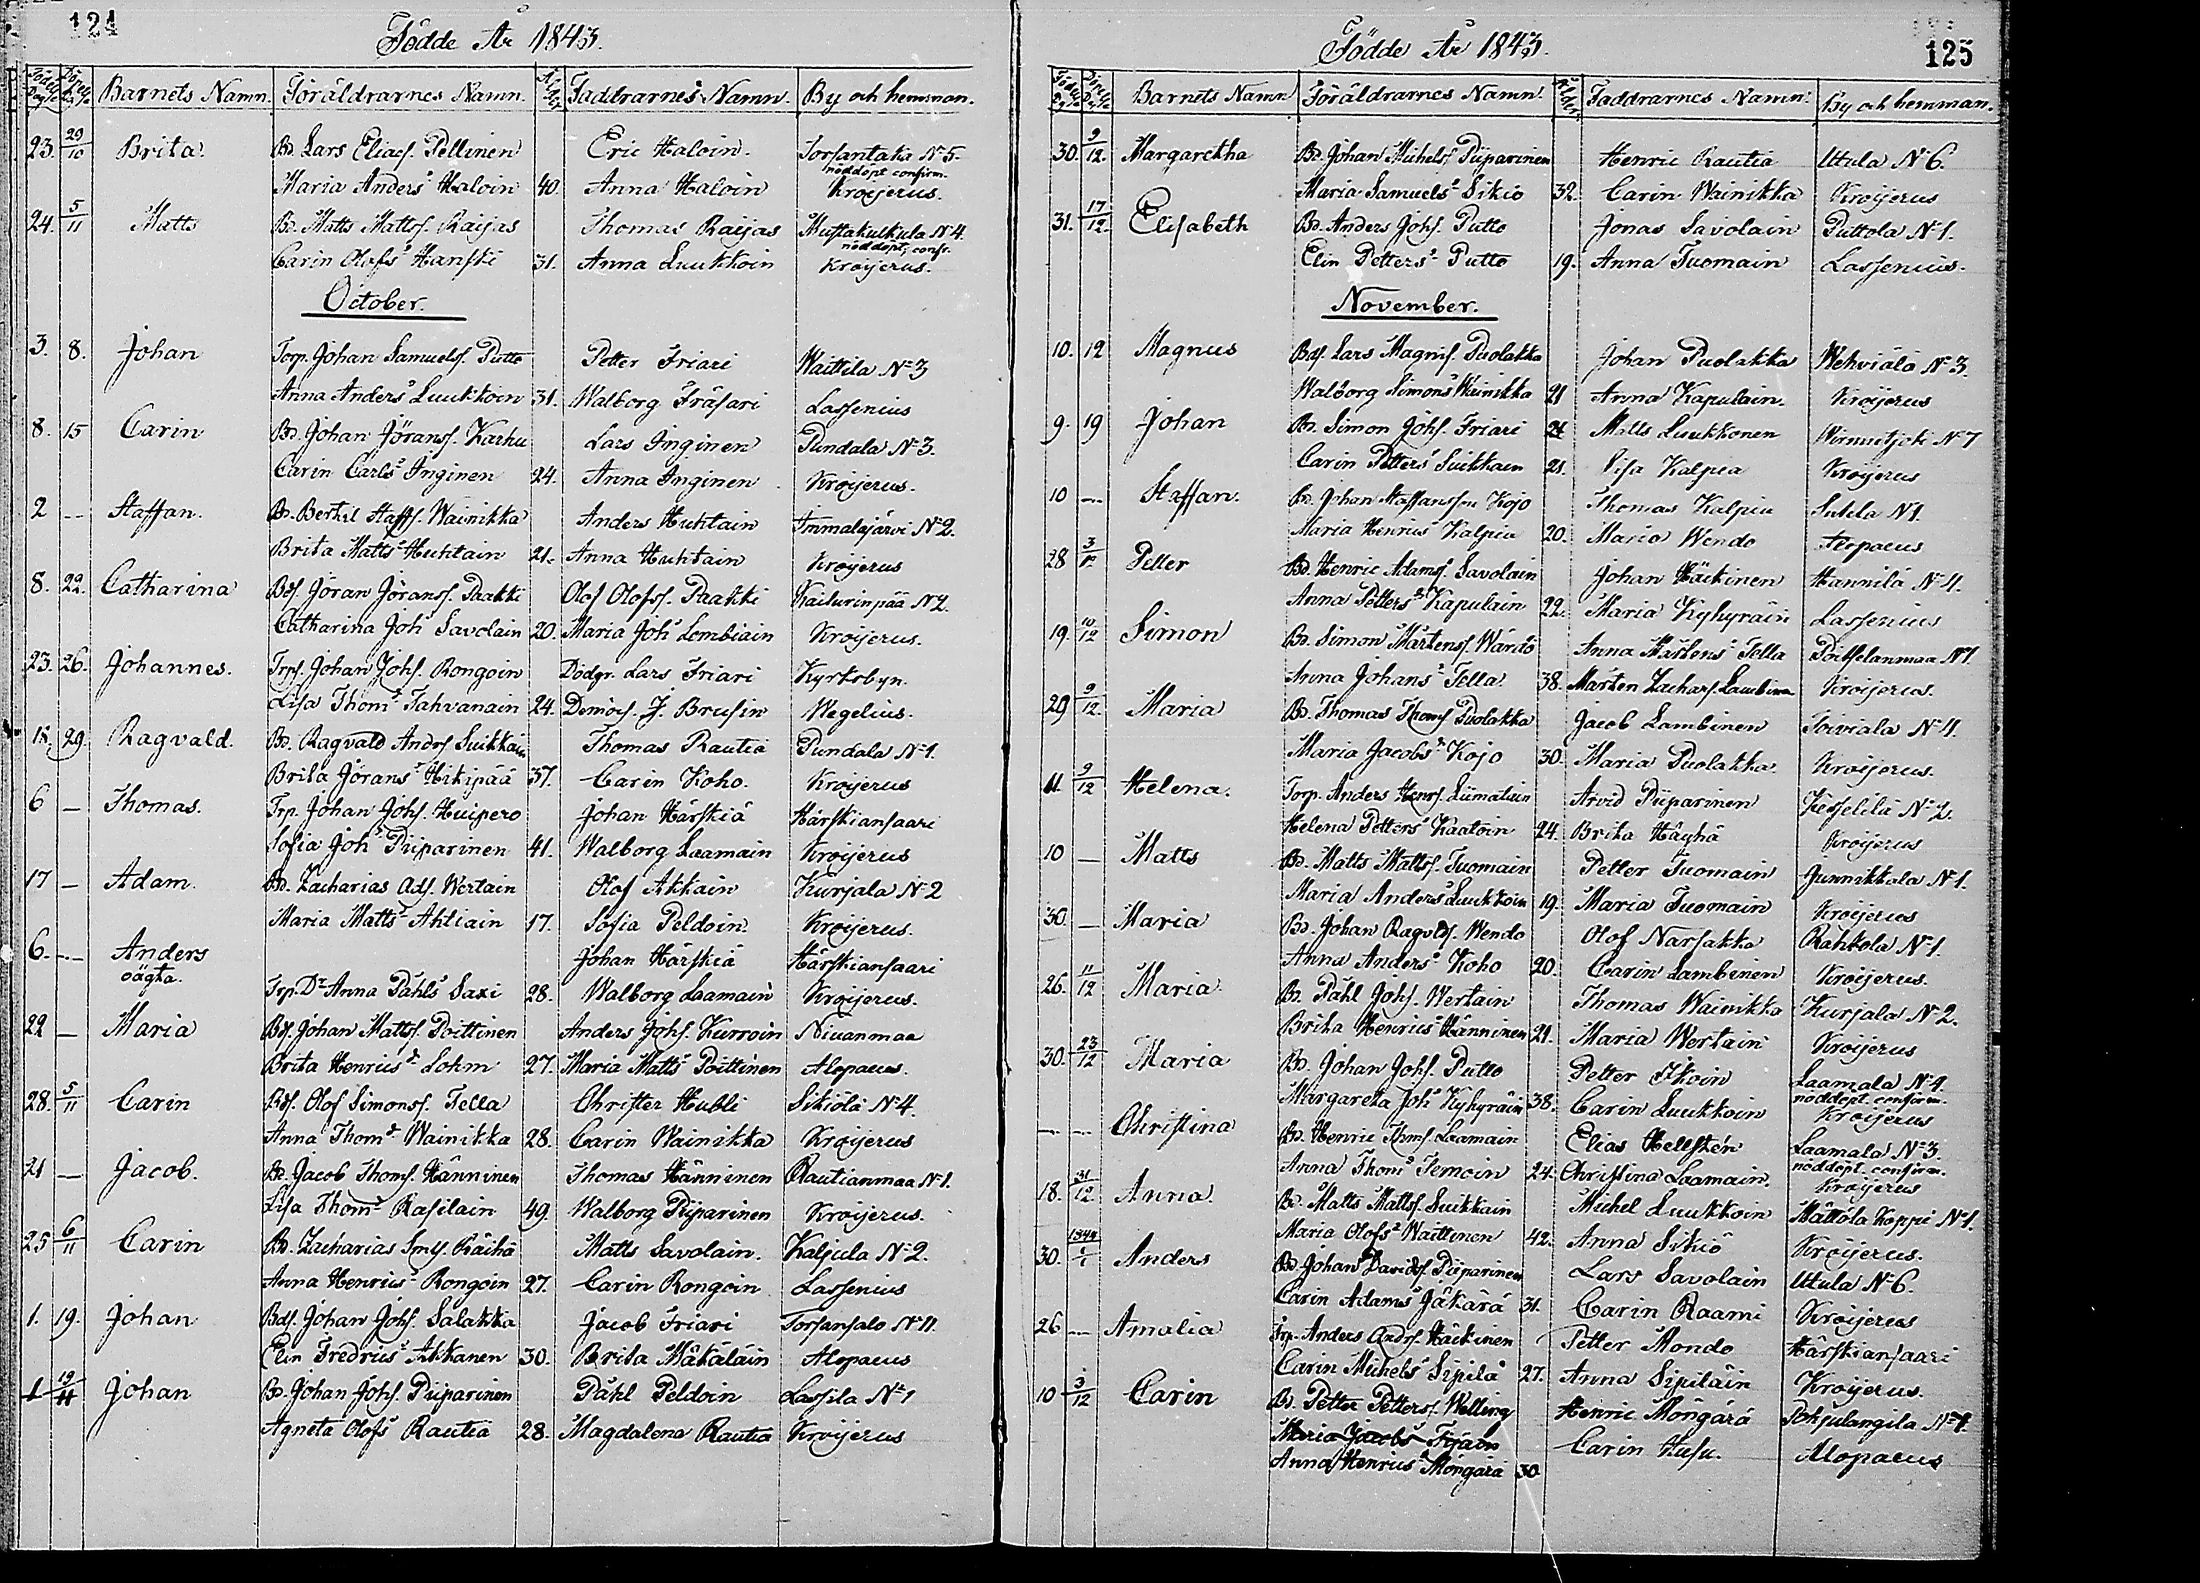 124
Födde År 1843.
Födelse Dag Döpelse Dag Barnets Namn. Föräldrarnes Namn. Ålder Faddrarnes Namn. By och hemman.
23. 29/10 Brita. Bd. Lars Eliass. Pellinen Eric Haloin. Torsantaka No 5.
nöddöpt confirm.
Maria Andersdr Haloin 40. Anna Haloin Kroijerus.
24. 5/11 Matts Bd. Matts Mattss. Raijas Thomas Raijas Mustakulkula No 4.
nöddöpt, conf.
Carin Olofsdr Hanski 31. Anna Luukkoin Kroijerus.
October.
3. 8. Johan Torp. Johan Samuelss. Putto Petter Friari Waittila No 3
Anna Andersdr Luukkoin 31. Walborg Fräsari Lassenius
8. 15 Carin Bd. Johan Jöranss. Karhu Lars Inginen Pundala No 3.
Carin Carlsdr Inginen 24. Anna Inginen Kroijerus.
2 -- Staffan. Bd. Bertil Staffs. Wainikka Anders Huhtain Immalajärvi No 2.
Brita Mattsdr Huhtain 21. Anna Huhtain Kroijerus
8. 22. Catharina Bds. Jöran Jöranss. Paakki Olof Olofss. Paakki Kailurinpää No 2.
Catharina Johdr Savolain 20. Maria Johdr Lembiain Kroijerus.
23. 26. Johannes. Trp. Johan Johs. Rongoin Dödgr. Lars Friari Kyrkobyn.
Lisa Thomdr Tahvanain 24. Demois. J. Brusin Wegelius.
18. 29. Ragvald. Bd. Ragvald Andrs. Suikkain Thomas Rautia Pundala No 1.
Brita Jöransdr Hikipää 37. Carin Koho. Kroijerus
6 — Thomas. Trp. Johan Johs. Huipero Johan Härskiä Härskiansaari
Sofia Johdr Piiparinen 41. Walborg Laamain Kroijerus
17 — Adam. Bd. Zacharias Ads. Wertain Olof Akkain Kurjala No 2
Maria Mattsdr Ahtiain 17. Sofia Peldoin. Kroijerus.
6. -- Anders Johan Härskiä Härskiansaari
oägta. Trp. Dr Anna Påhlsdr Saxi 28. Walborg Laamain Kroijerus.
22 — Maria Bds. Johan Mattss. Poittinen Anders Johs. Kurroin Niuanmaa
Brita Henricsdr Lohm 27. Maria Mattsdr Poittinen Alopaeus.
28. 5/11 Carin Bds. Olof Simonss. Tella Christer Hubli Sikiölä No 4.
Anna Thomdr Wainikka 28. Carin Wainikka Kroijerus
21 — Jacob. Bd. Jacob Thoms. Hänninen Thomas Hänninen Rautianmaa No 1.
Lisa Thomdr Rasilain 49. Walborg Piiparinen Kroijerus.
25 6/11 Carin Bd. Zacharias Smls. Räihä Matts Savolain. Kaljula No 2.
Anna Henricsdr Rongoin 27. Carin Rongoin Lassenius
1. 19. Johan Bds. Johan Johs. Salakka Jacob Friari Torsansalo No 11.
Elin Fredricsdr Akkanen 30. Brita Mäkäläin Alopaeus
1 19/11 Johan Bd. Johan Johs. Piiparinen Påhl Peldoin Lassila No 1
Agneta Olofsdr Rautia 28. Magdalena Rautia Kroijerus
125
Födde År 1843.
Födelse Dag Döpelse Dag Barnets Namn Föräldrarnes Namn. Ålder Faddrarnes Namn. By och hemman.
30. 9/12. Margaretha Bd. Johan Michelss. Piiparinen Henric Rautia Uttula No 6.
Maria Samuelsdr Sikiö 32. Carin Wainikka Kroijerus
31. 17/12. Elisabeth Bd. Anders Johs. Putto Jonas Savolain Puttola No 1.
Elin Pettersdr Putto 19. Anna Tuomain Lassenius.
November.
10. 12 Magnus Bds. Lars Magnss. Puolakka Johan Puolakka Wehviälä No 3.
Walborg Simonsdr Wainikka 21 Anna Kapulain. Kroijerus
9. 19 Johan Bd. Simon Johs. Friari 24 Matts Luukkonen Wirmutjoki No 7
Carin Pettersdr Suikkain 21. Lisa Kalpia Kroijerus
10 -- Staffan. Bd. Johan Staffansson Kojo Thomas Kalpia Suttla No 1.
Maria Henricsdr Kalpia 20. Maria Wendo Alopaeus
28 3/12 Petter Bd. Henric Adamss. Savolain Johan Häikinen Hannilä No 4.
Anna Pettersdr Kapulain 22. Maria Kyhyräin Lassenius
19. 10/12 Simon Bd. Simon Mårtenss. Wardo Anna Mårtensdr Tella Poitselanmaa No 1.
Anna Johansdr Tella. 38. Mårten Zachars. Lambinen Kroijerus.
29 9/12. Maria Bd. Thomas Thoms. Puolakka Jacob Lambinen Toiviala No 4.
Maria Jacobsdr Kojo 30. Maria Puolakka. Kroijerus.
11. 9/12 Helena. Torp. Anders Henrs. Liimatain Arvid Piiparinen Kesselilä No 2.
Helena Pettersdr Kaatoin 24. Brita Häyhä Kroijerus
10 — Matts Bd. Matts Mattss. Tuomain Petter Tuomain Junnikkala No 1.
Maria Andersdr Luukkoin 19. Maria Tuomain Kroijerus
30. — Maria Bd. Johan Ragvlds. Wendo Olof Narsakka Rahkola No 1.
Anna Andersdr Koho 20. Carin Lambinen Kroijerus.
26. 11/12 Maria Bd. Påhl Johs. Wertain Thomas Wainikka Kurjala No 2.
Brita Henricsdr Hänninen 21. Maria Wertain Kroijerus
30. 23/12 Maria Bd. Johan Johs. Putto Petter Ikoin Laamala No 4.
nöddöpt. confirm.
Margareta Johdr Kyhyräin 38. Carin Luukkoin Kroijerus
-- -- Christina Bd. Henric Thms. Laamain Elias Hellstén Laamala No 3.
nöddöpt. confirm.
Anna Thomdr Temoin 24. Christina Laamain. Kroijerus
18. 31/12 Anna. Bd. Matts Mattss. Suikkain Michel Luukkoin Mättölä Koppi No 1.
Maria Olofsdr Waittinen 42. Anna Sikiö Kroijerus.
30. 1844 1/1 Anders Bd. Johan Davids. Piiparinen Lars Savolain Uttula No 6.
Carin Adamsdr Jäkärä 31. Carin Raami Kroijerus
26 -- Amalia Trp. Anders Andrs. Häikinen Petter Mondo Härskiansaari
Carin Michelsdr Sipilä 27. Anna Sipiläin Kroijerus.
10 3/12 Carin Bd. Petter Petterss. Welling Henric Möngärä Pohjalangila No 1.
Maria Jacobsdr Fijain Carin Husu. Alopaeus
Anna Henricsdr Möngärä 30